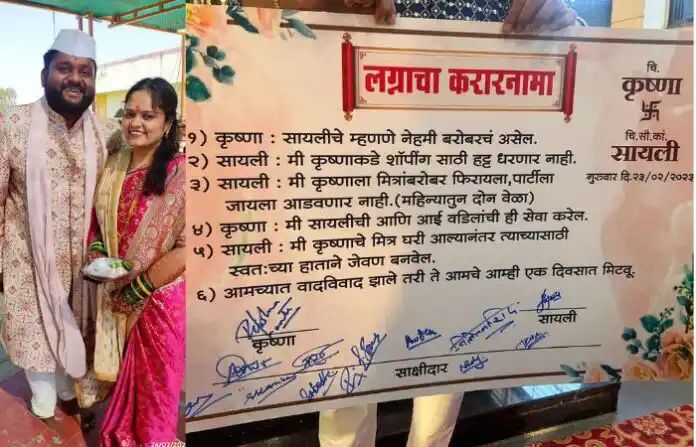 लग्नाचा करारनामा
चि.
कृष्णा
चि.सौ.कां.
सायली
गुरुवार दि.२३/०२/२०२३
१) कृष्णा : सायलीचे म्हणणे नेहमी बरोबरचं असेल.
२) सायली : मी कृष्णाकडे शॉपींग साठी हट्ट धरणार नाही.
३) सायली : मी कृष्णाला मित्रांबरोबर फिरायला,पार्टीला
जायला आडवणार नाही.(महिन्यातुन दोन वेळा)
४) कृष्णा : मी सायलीची आणि आई वडिलांची ही सेवा करेल.
५) सायली : मी कृष्णाचे मित्र घरी आल्यानंतर त्याच्यासाठी
स्वतःच्या हाताने जेवण बनवेल.
६) आमच्यात वादविवाद झाले तरी ते आमचे आम्ही एक दिवसात मिटवू.
कृष्णा
सायली
साक्षीदार